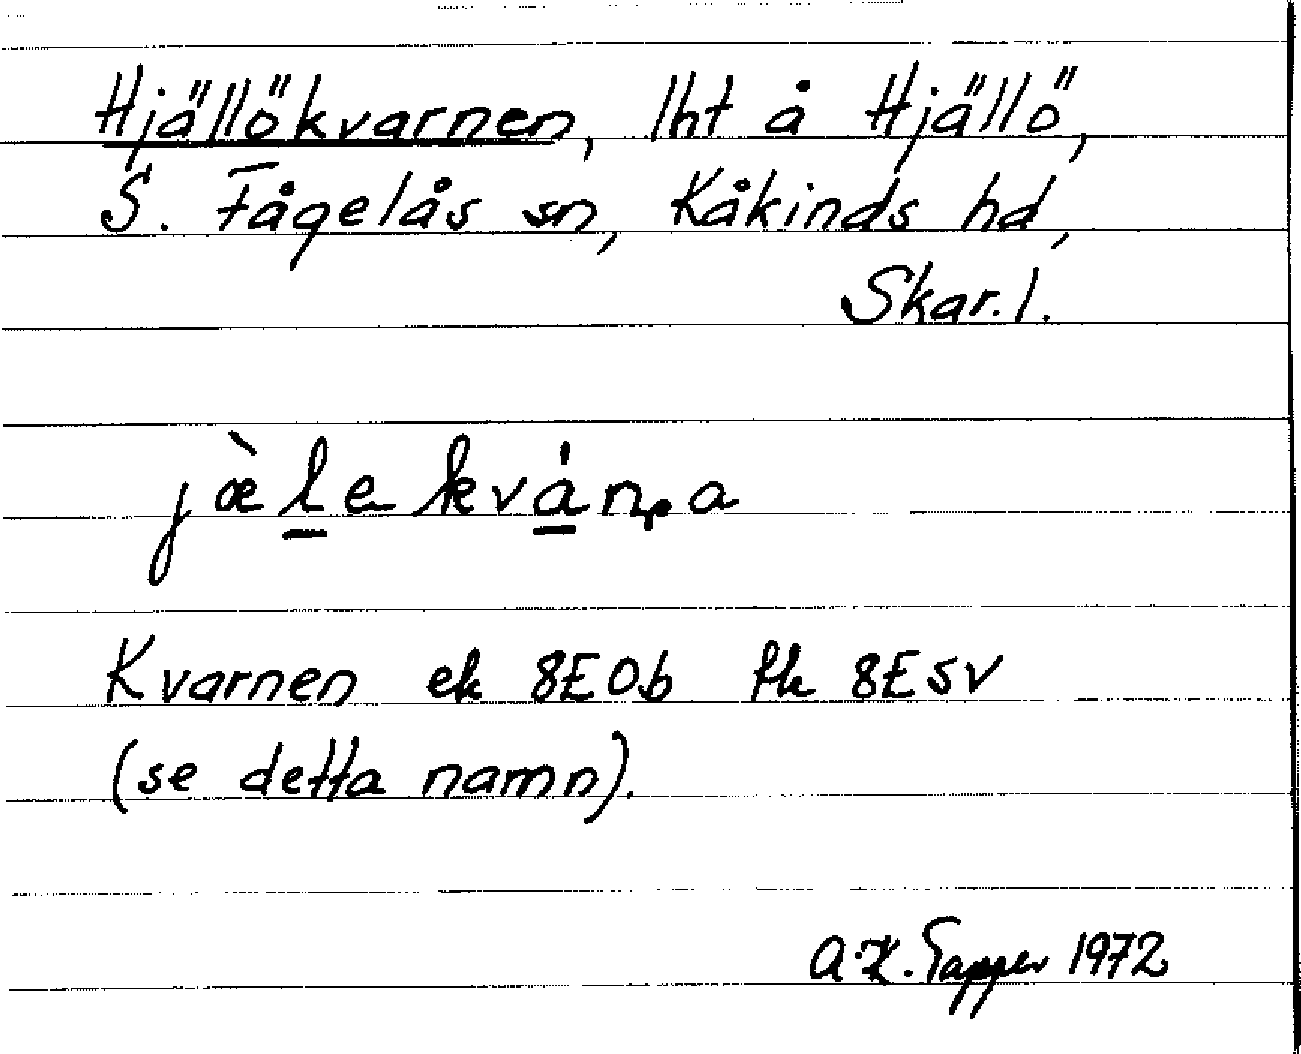 Hjällökvarnen, lht å Hjällö,
S. Fågelås sn, Kåkinds hd,
Skar. l.
jæ̀l̠e kvȧ̠ṇa
Kvarnen ek 8E0b fk 8E SV
(se detta namn).
A.K. Tapper 1972